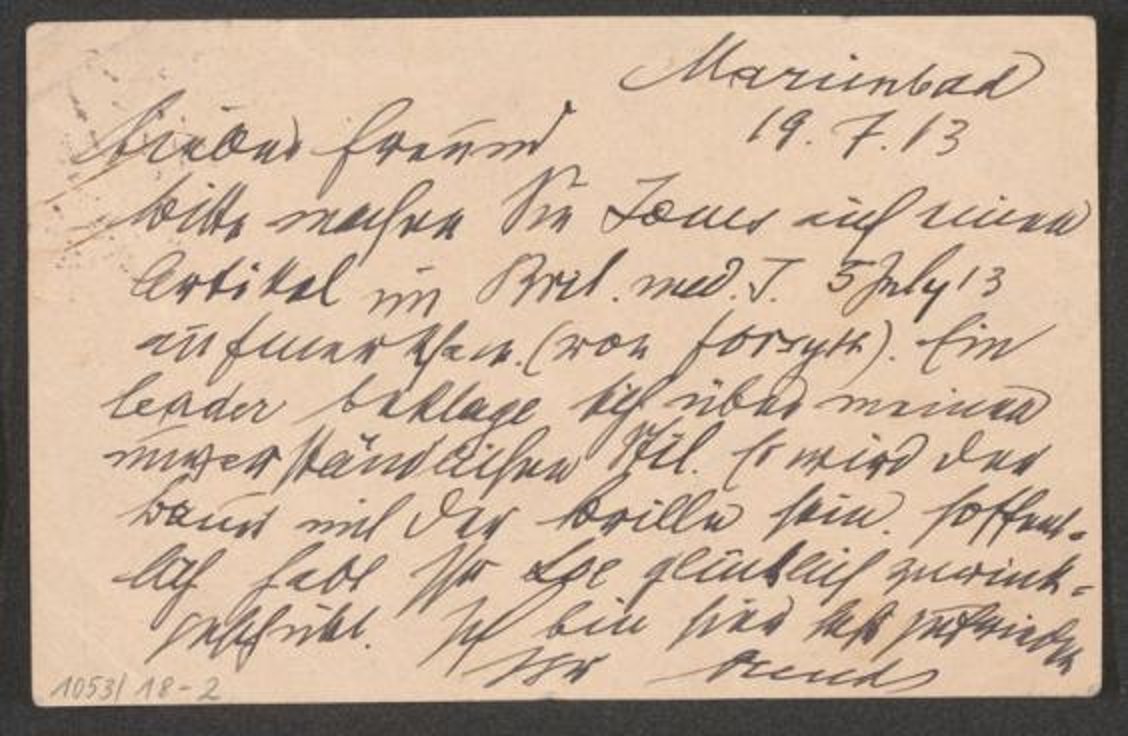 Marienbad
19. 7. 13
Lieber Freund
bitte machen Sie Jones auf einen
Artikel im Brit. med. J. 5 July 13
aufmerksam. (von Forsyth). Ein
leader beklage sich über meinen
unverständlichen Stil. Es wird der
Bauer mit der Brille sein. Hoffent-
lich habt Ihr Loe glücklich zurück-
geführt. Ich bin hier sehr zufrieden
Ihr Freud
1053/18-2